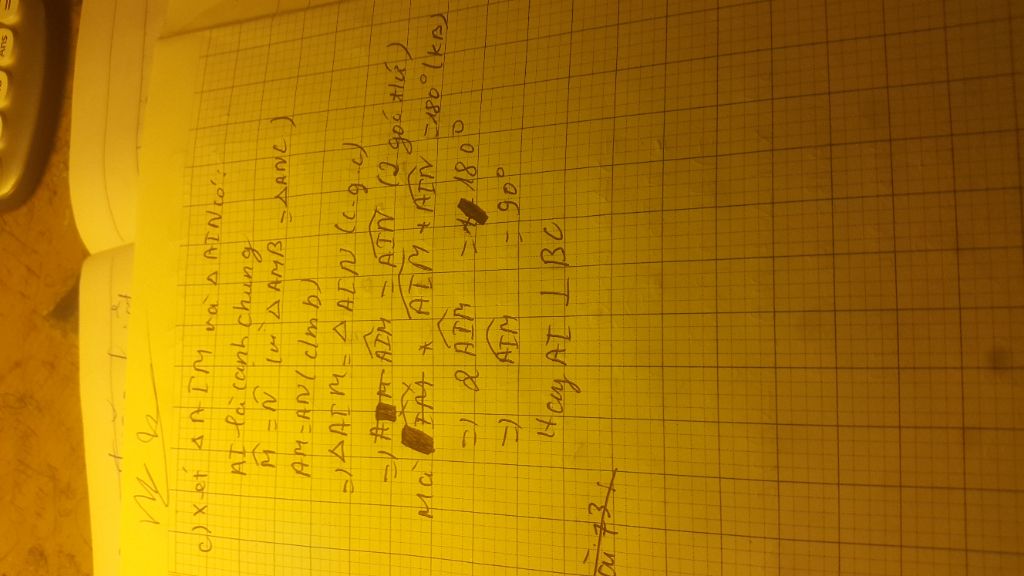 c) Xét △AIM và △AIN có:
AI là cạnh chung
M̂ = N̂ (vì △AMB = △ANC)
AM = AN (clmb)
=> △AIM = △AIN (c.g.c)
=> AIM = AIN (2 góc t/ứ)
Mà AIM + AIN = 180° (kb)
=> 2 AIM = 180°
=> AIM = 90°
Hay AI ⊥ BC